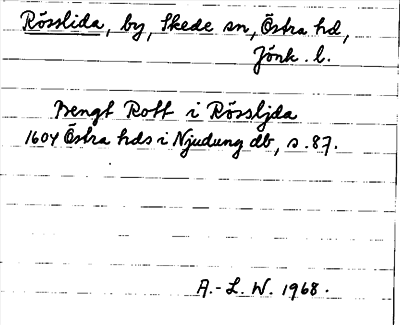 Rösslida, by, Skede sn, Östra hd,
Jönk. l.
Bengt Rott i Rössljda
1604 Östra hds i Njudung db, s. 87.
A.-L. W. 1968.